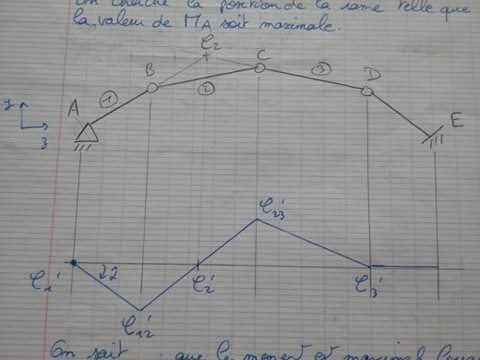 On cherche la position de la rame telle que
la valeur de M_A soit maximale.
C₂
B
C
③
D
①
②
A
y
z
E
C₂₃'
C₁'
C₂'
C₃'
C₁₂'
On sait que le moment est maximal